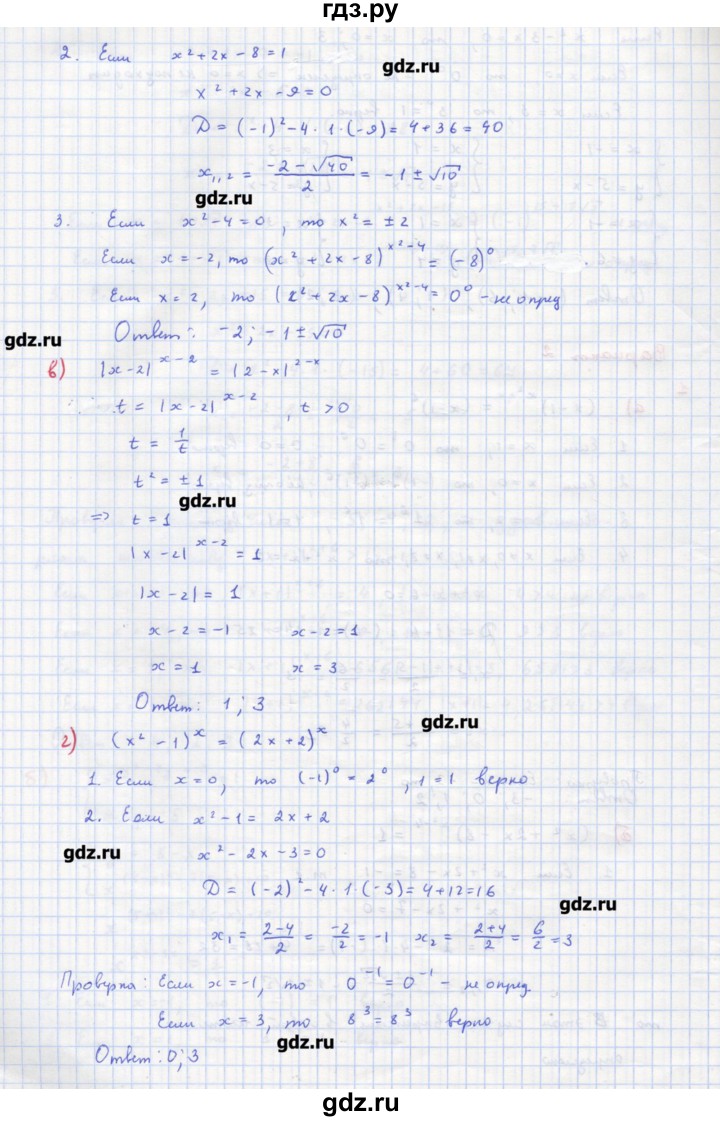 гдз.ру
2. Если x² + 2x - 8 = 1
gdz.ru
x² + 2x - 9 = 0
D = (-1)² - 4 · 1 · (-9) = 4 + 36 = 40
x₁,₂ = (-2 - √40)/2 = -1 ± √10
gdz.ru
3. Если x² - 4 = 0, то x² = ± 2
Если x = -2, то (x² + 2x - 8)^(x² - 4) = (-8)⁰
Если x = 2, то (x² + 2x - 8)^(x² - 4) = 0⁰ - не опред
Ответ: -2; -1 ± √10
gdz.ru
в) |x - 2|^(x - 2) = |2 - x|^(2 - x)
t = |x - 2|^(x - 2), t > 0
t = 1/t
t² = ± 1
gdz.ru
=> t = 1
|x - 2|^(x - 2) = 1
|x - 2| = 1
x - 2 = -1 x - 2 = 1
x = 1 x = 3
Ответ: 1; 3
gdz.ru
г) (x² - 1)^x = (2x + 2)^x
1. Если x = 0, то (-1)⁰ = 2⁰, 1 = 1 верно
2. Если x² - 1 = 2x + 2
gdz.ru
x² - 2x - 3 = 0
D = (-2)² - 4 · 1 · (-3) = 4 + 12 = 16
gdz.ru
x₁ = (2-4)/2 = -2/2 = -1 x₂ = (2+4)/2 = 6/2 = 3
Проверка: Если x = -1, то 0⁻¹ = 0⁻¹ - не опред.
Если x = 3, то 8³ = 8³ верно
gdz.ru
Ответ: 0; 3
gdz.ru